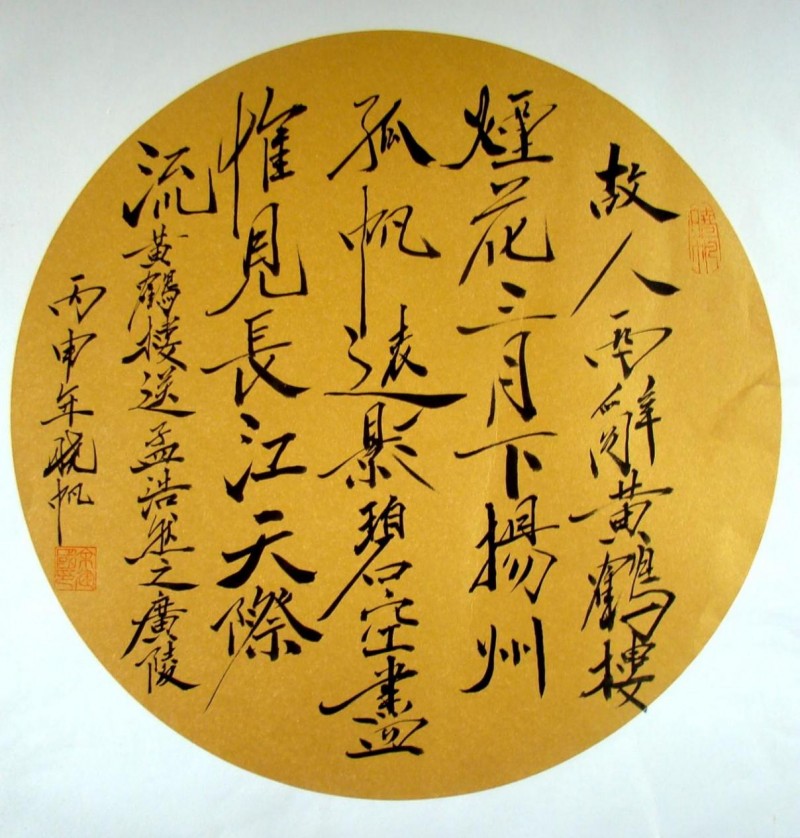 故人西辭黄鶴樓
煙花三月下揚州
孤帆遠影碧空盡
惟見長江天際
流黄鶴樓送孟浩然之廣陵
丙申年晓帆